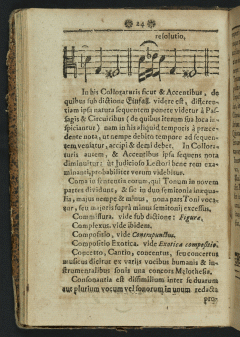 24
resolutio,
In his Colloraturis sicut & Accentibus, de
quibus sub dictione Einfall. videre est, differen-
tiam ipsa natura sequentem ponere videtur à Pas-
sagis & Circuitibus (de quibus iterum sua loco in-
spiciantur) nam in his aliquid temporis à præce-
dente nota, ut nempe debito tempore ad sequen-
tem veniatur, accipi & demi debet. In Collora-
turis autem, & Accentibus ipsa sequens nota
diminuitur; ut Judicioso Lectori bene rem exa-
minanti, probabiliter verum videbitur.
Comma in sententia eorum, qui Tonum in novem
partes dividunt, & sic in duo semitonia inæqua-
lia, majus nempe & minus, nona pars Toni voca-
tur, seu majoris suprà minus semitonii excessus.
Commissura. vide sub dictione: Figura.
Complexus. vide ibidem.
Compositio, vide Contrapunctus.
Compositio Exotica. vide Exotica compositio.
Concerto, Cantio, concentus, seu concertus
musicus dicitur ex variis vocibus humanis & in-
strumentalibus sonis una concors Melothesia.
Consonantia est dissimilium inter se duarum
aut plurium vocum vel sonorum in unum redacta